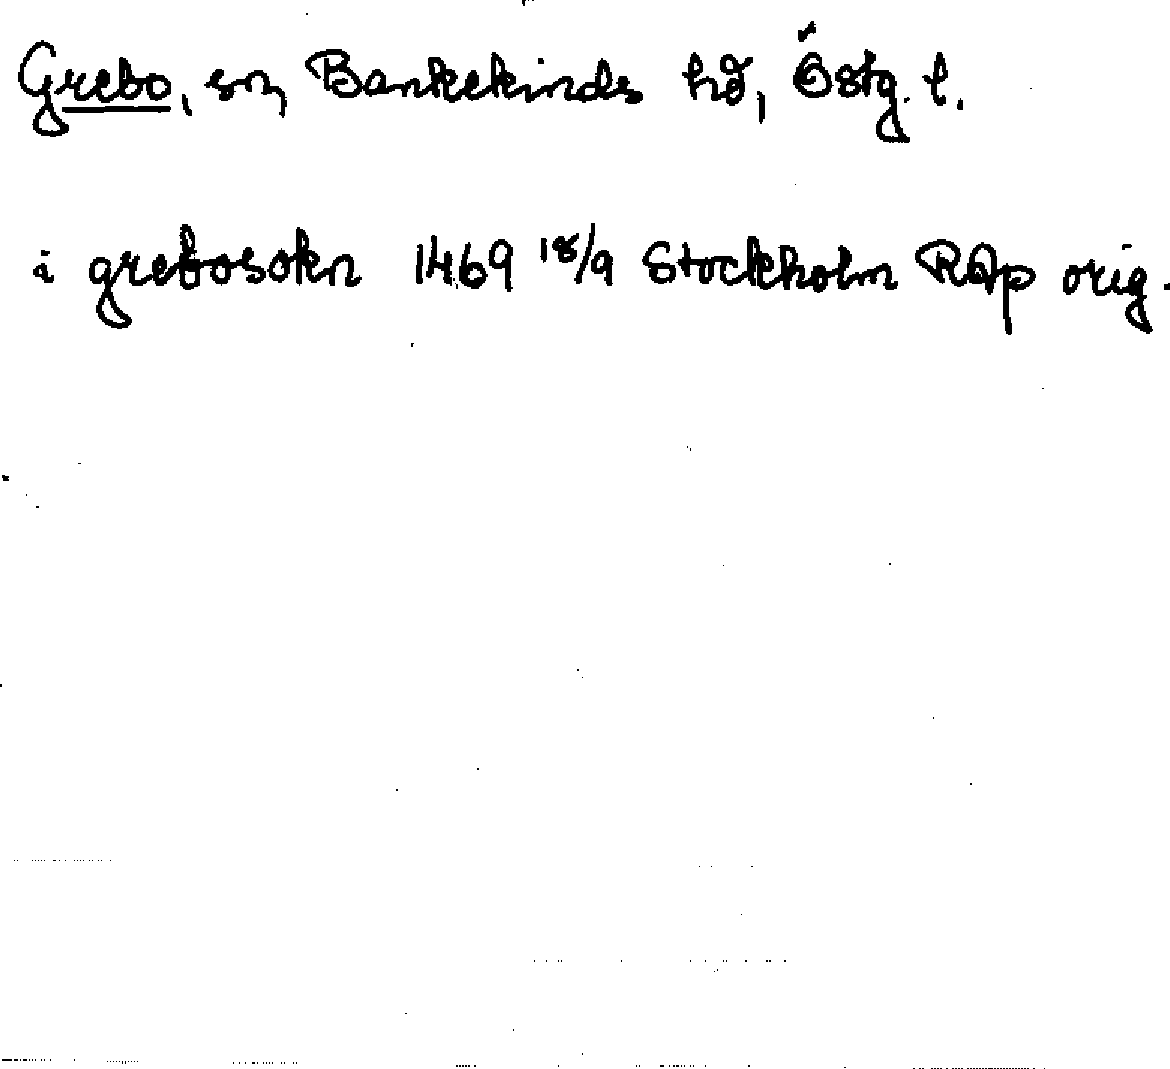 Grebo, sn, Bankekinds hd, Östg. l.
i grebosokn 1469 18/9 Stockholm RAp orig.